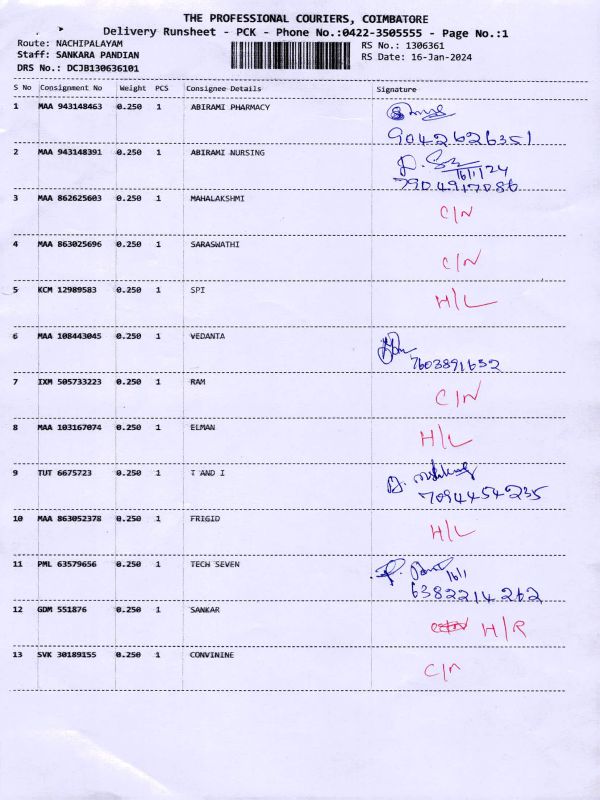 THE PROFESSIONAL COURIERS, COIMBATORE
Delivery Runsheet - PCK - Phone No.:0422-3505555 - Page No.:1
Route: NACHIPALAYAM RS No.: 1306361
Staff: SANKARA PANDIAN RS Date: 16-Jan-2024
DRS No.: DCJB130636101
S No Consignment No Weight PCS Consignee Details Signature
1 MAA 943148463 0.250 1 ABIRAMI PHARMACY
9042626351
2 MAA 943148391 0.250 1 ABIRAMI NURSING
16/1/24
7904917086
3 MAA 862625603 0.250 1 MAHALAKSHMI C/N
4 MAA 863025696 0.250 1 SARASWATHI C/N
5 KCM 12989583 0.250 1 SPI H/L
6 MAA 108443045 0.250 1 VEDANTA
7603891652
7 IXM 505733223 0.250 1 RAM C/N
8 MAA 103167074 0.250 1 ELMAN H/L
9 TUT 6675723 0.250 1 T AND I
7094454235
10 MAA 863052378 0.250 1 FRIGID H/L
11 PML 63579656 0.250 1 TECH SEVEN
16/1
6382214262
12 GDM 551876 0.250 1 SANKAR H/R
13 SVK 30189155 0.250 1 CONVININE C/N